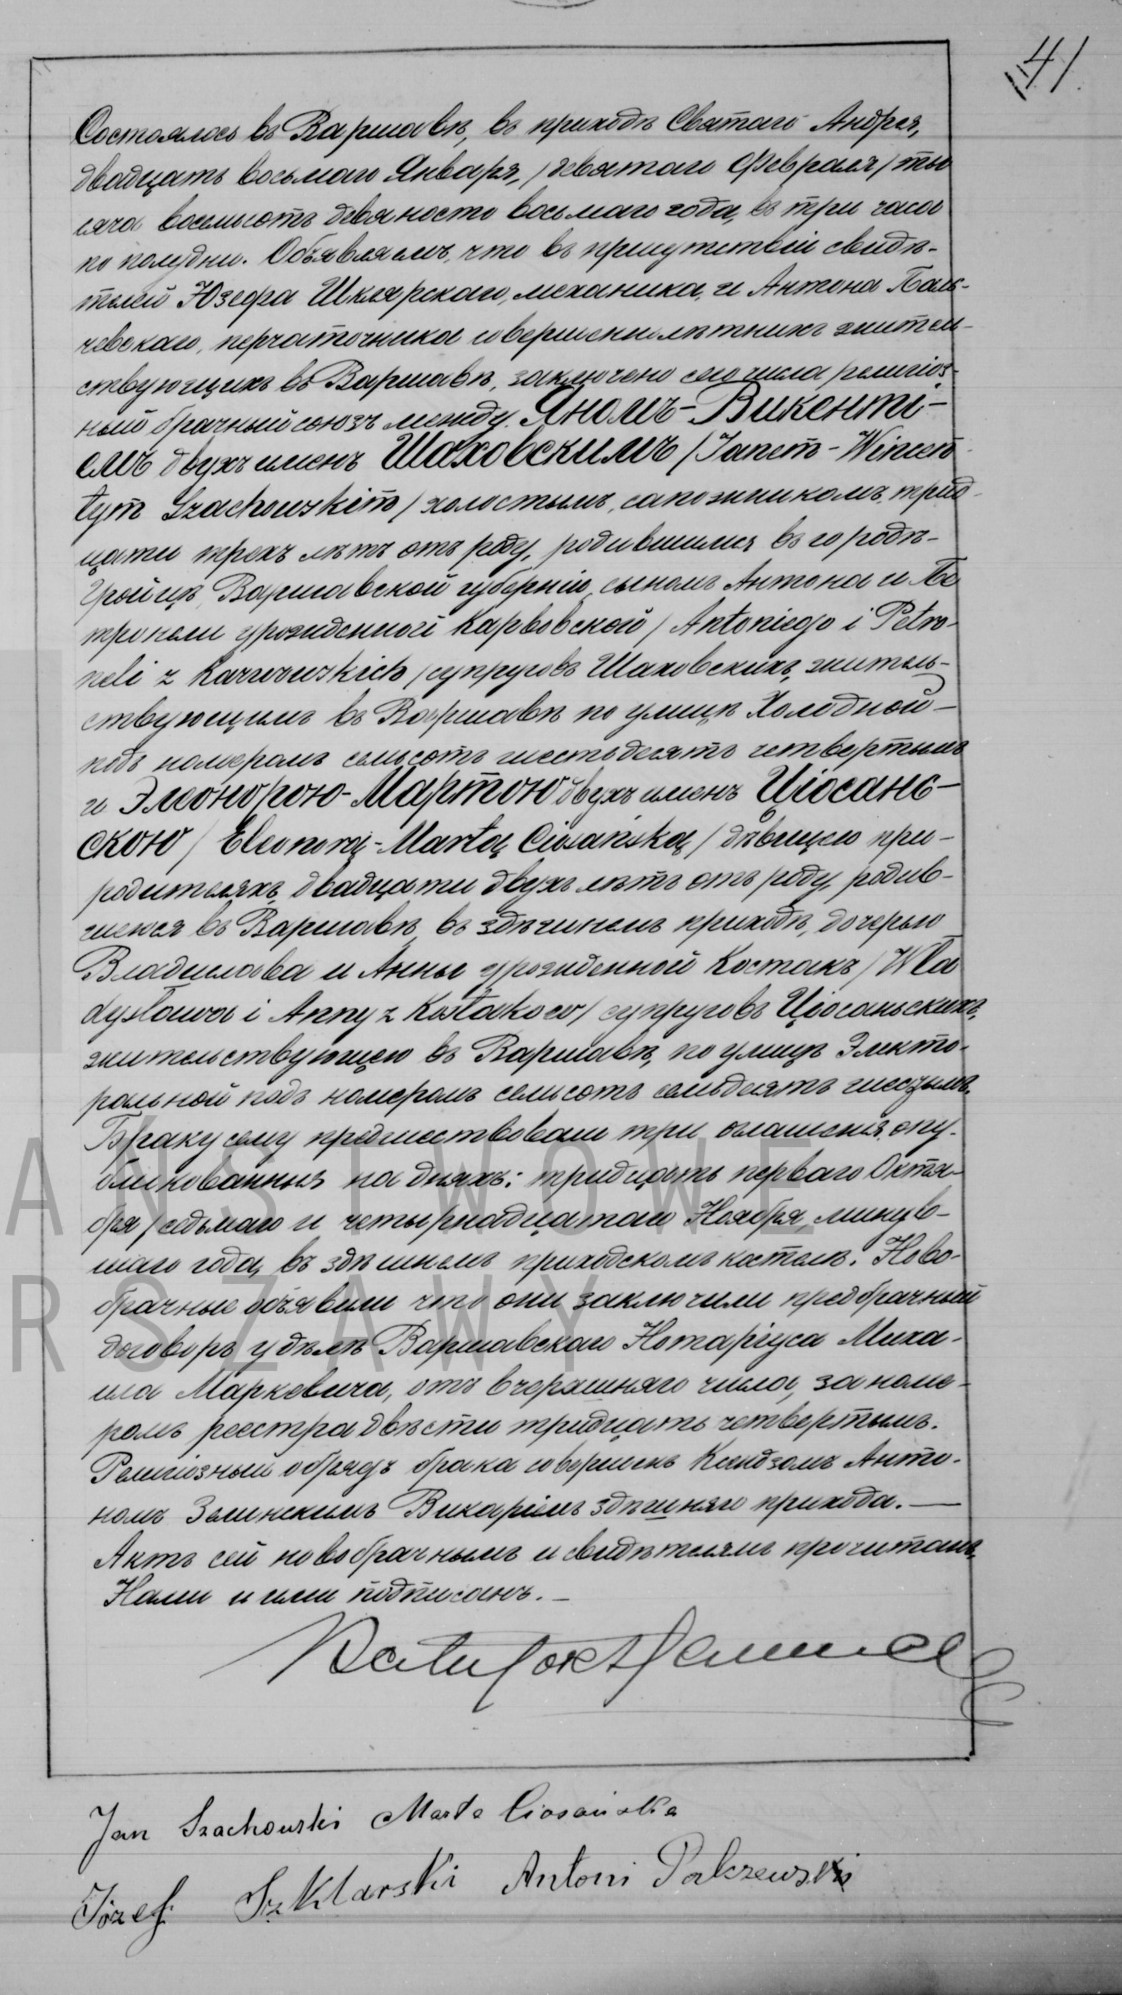 41.
Состоялось въ Варшавѣ, въ приходѣ Святаго Андрея,
двадцать восьмаго Января, /девятаго Февраля/ ты
сяча восемьсотъ девяносто восьмаго года, въ три часа
по полудни. Объявляемъ, что въ присутствіи свидѣ-
телей Юзефа Шклярскаго, механика, и Антона Паль-
чевскаго, перчаточника совершеннолѣтнихъ житель-
ствующихъ въ Варшавѣ, заключено сего числа религіоз-
ный брачный союзъ между Яномъ-Викенті-
емъ двухъ именъ Шаховскимъ /Janem-Wincen-
tym Szachowskim/ холостымъ, сапожникомъ, трид-
цати трехъ лѣтъ отъ роду, родившимся въ городѣ-
Гройцѣ, Варшавской губерніи, сыномъ Антона и Пе
тронели урожденной Карвовской /Antoniego i Petro-
neli z Karwowskich/ супруговъ Шаховскихъ, житель-
ствующимъ въ Варшавѣ по улицѣ Холодной-
подъ номеромъ семьсотъ шестьдесятъ четвертымъ
и Элеонорою-Мартою двухъ именъ Ціосань-
скою /Eleonorą-Martą Ciosańską/ дѣвицею при-
родителяхъ, двадцати двухъ лѣтъ отъ роду, родив-
шеюся въ Варшавѣ, въ здѣшнемъ приходѣ, дочерью
Владислава и Анны урожденной Костакъ /Wła
dysława i Anny z Kostaków/ супруговъ Ціосаньскихъ,
жительствующею въ Варшавѣ, по улицѣ Электо-
ральной подъ номеромъ семьсотъ семьдесятъ шестымъ.
Браку сему предшествовали три оглашенія, опу-
бликованныя на дняхъ: тридцать перваго Октя-
бря, седьмаго и четырнадцатаго Ноября, минув-
шаго года, въ здѣшнемъ приходскомъ костелѣ. Ново-
брачные объявили что они заключили предбрачный
договоръ у дѣлъ Варшавскаго Нотаріуса Миха-
ила Маркевича, отъ вчерашняго числа, за номе-
ромъ реестра двѣсти тридцать четвертымъ.
Религіозный обрядъ брака совершенъ Ксендзомъ Анто-
номъ Викаріемъ здѣшняго прихода.—
Актъ сей новобрачнымъ и свидѣтелямъ прочитанъ,
Нами и ими подписанъ.—
Jan Szachowski Marta Ciosańska
Józef Szklarski Antoni Palczewski
AŃSTWOWE
RSZAWY